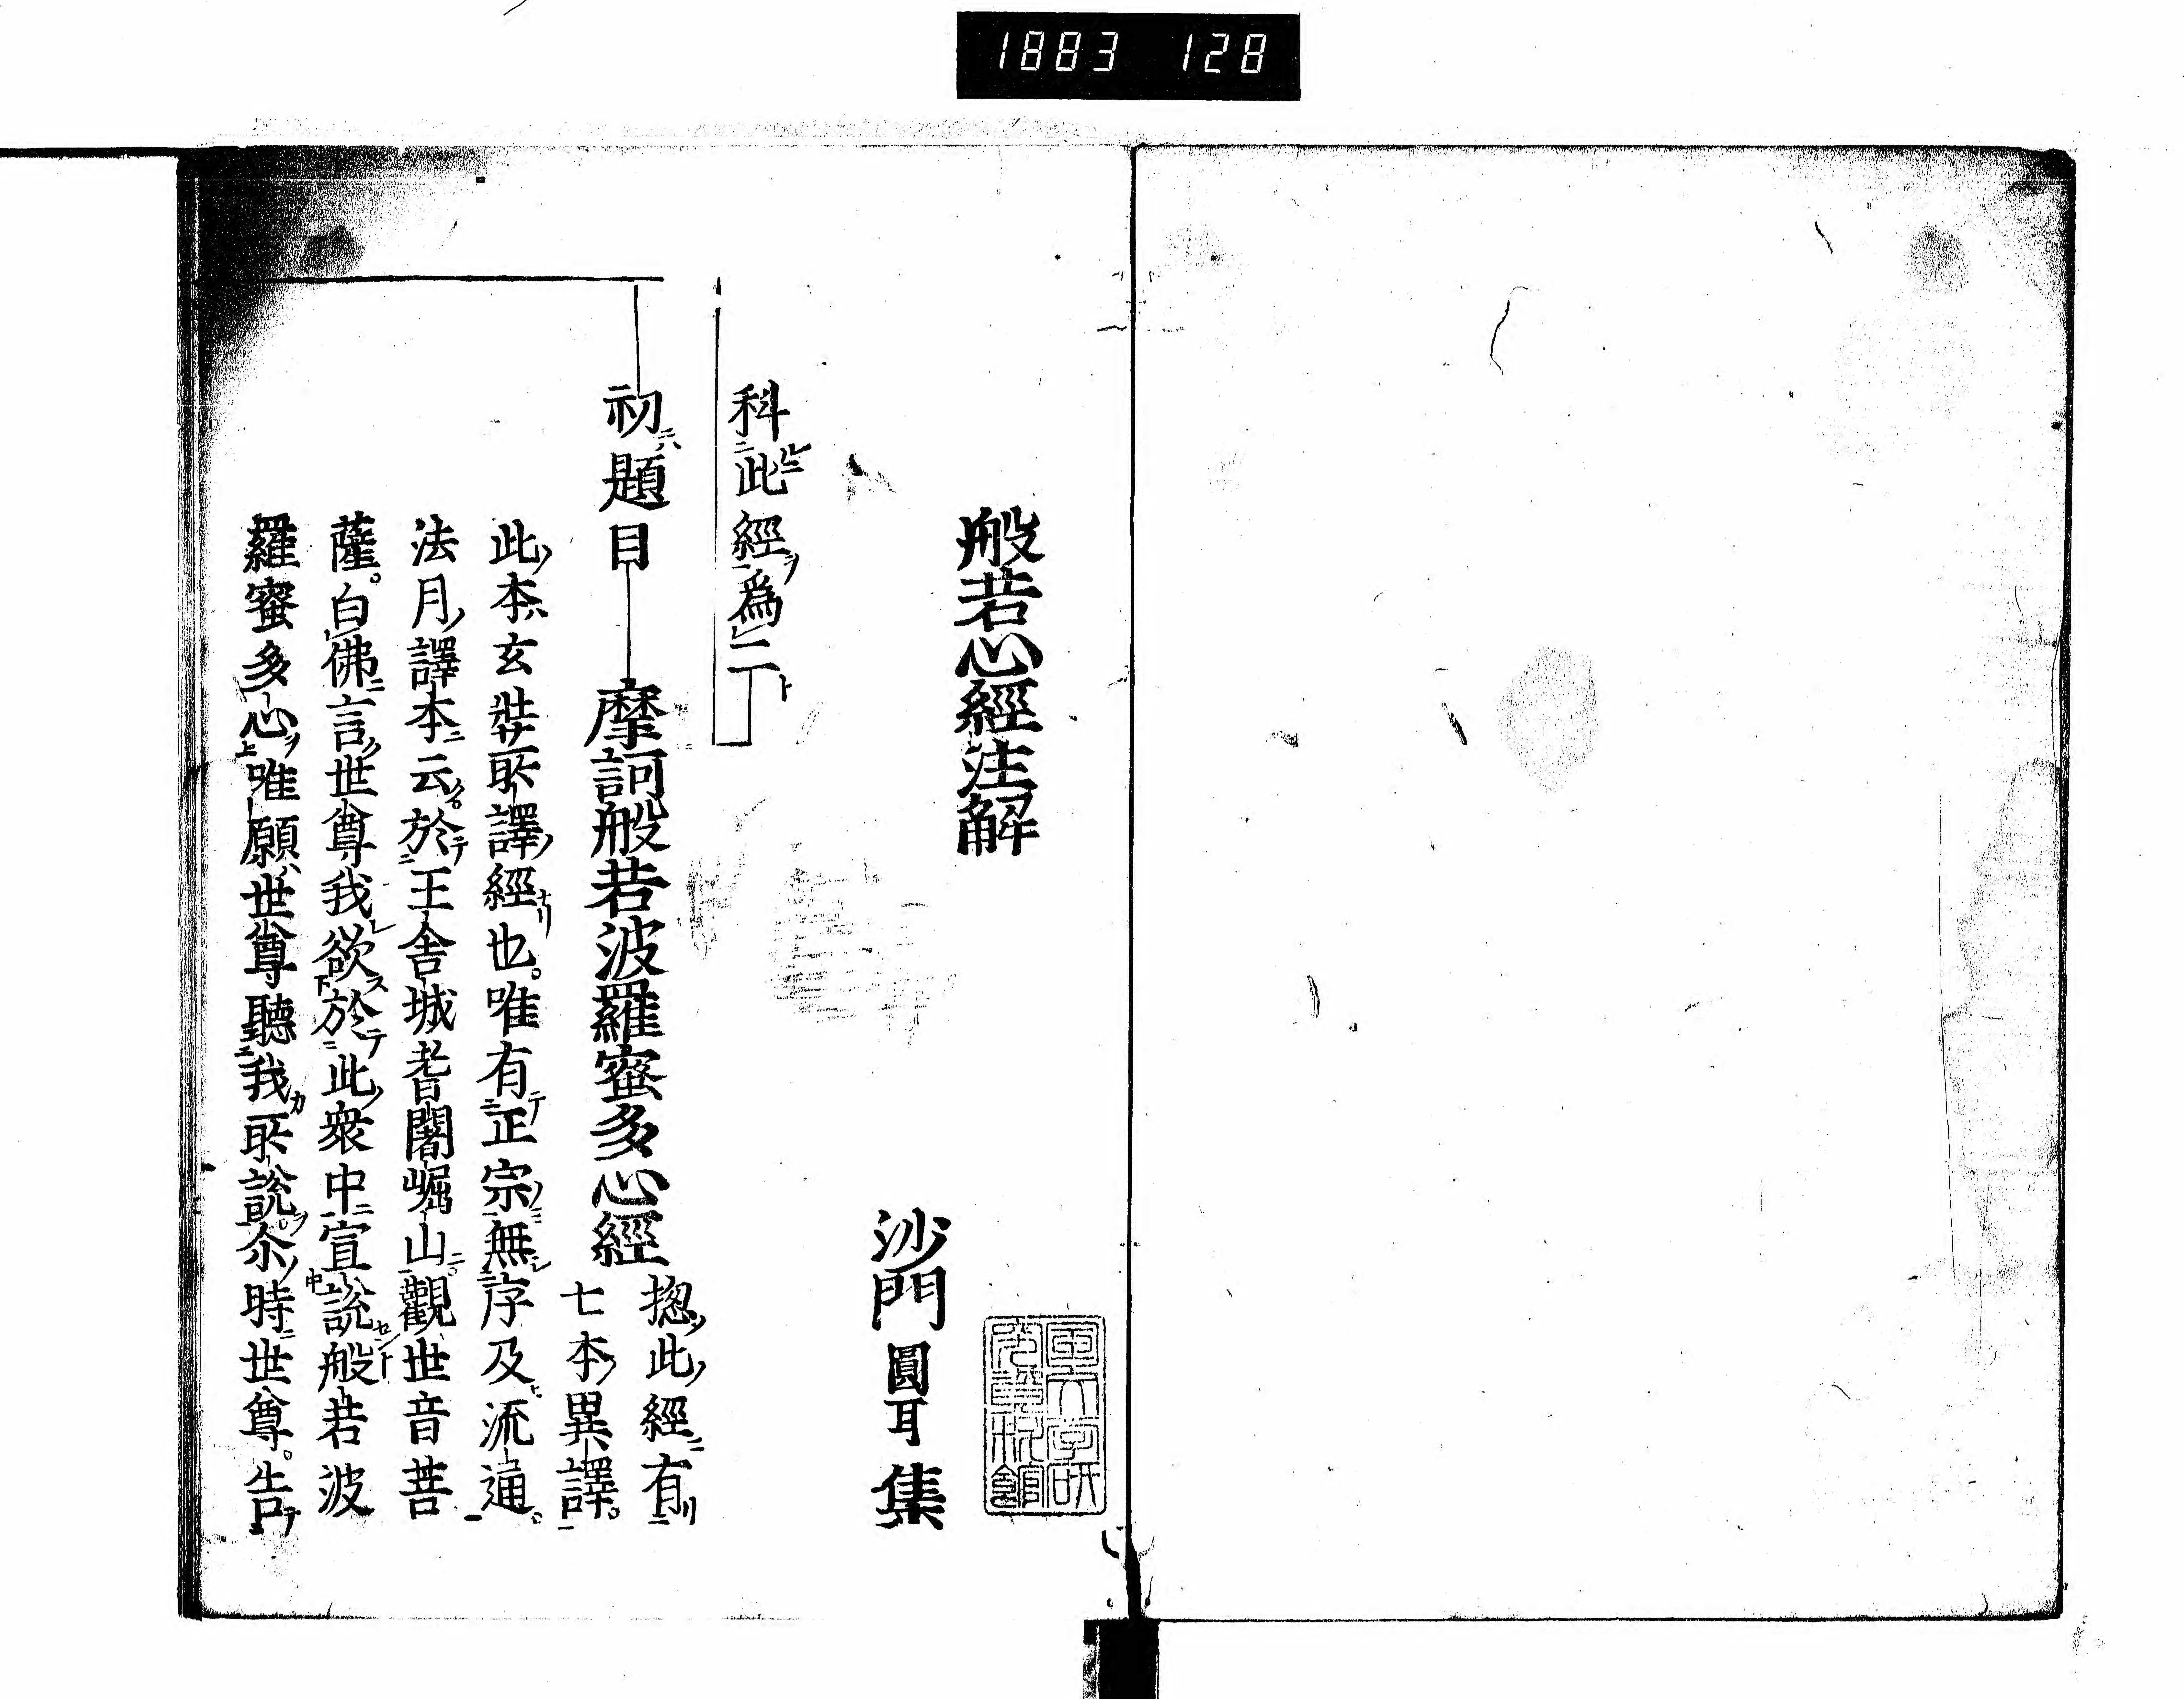 1883 128
般若心經注解
沙門圓耳集
科此經爲二
初題目
摩訶般若波羅蜜多心經
揔此經有
七本異譯。
此本玄弉所譯經也。唯有正宗無序及流通。
法月譯本云。於王舍城耆闍崛山。觀世音菩
薩。白佛言世尊我欲於此衆中宣說般若波
羅蜜多心唯願世尊聽我所說。尒時世尊。告